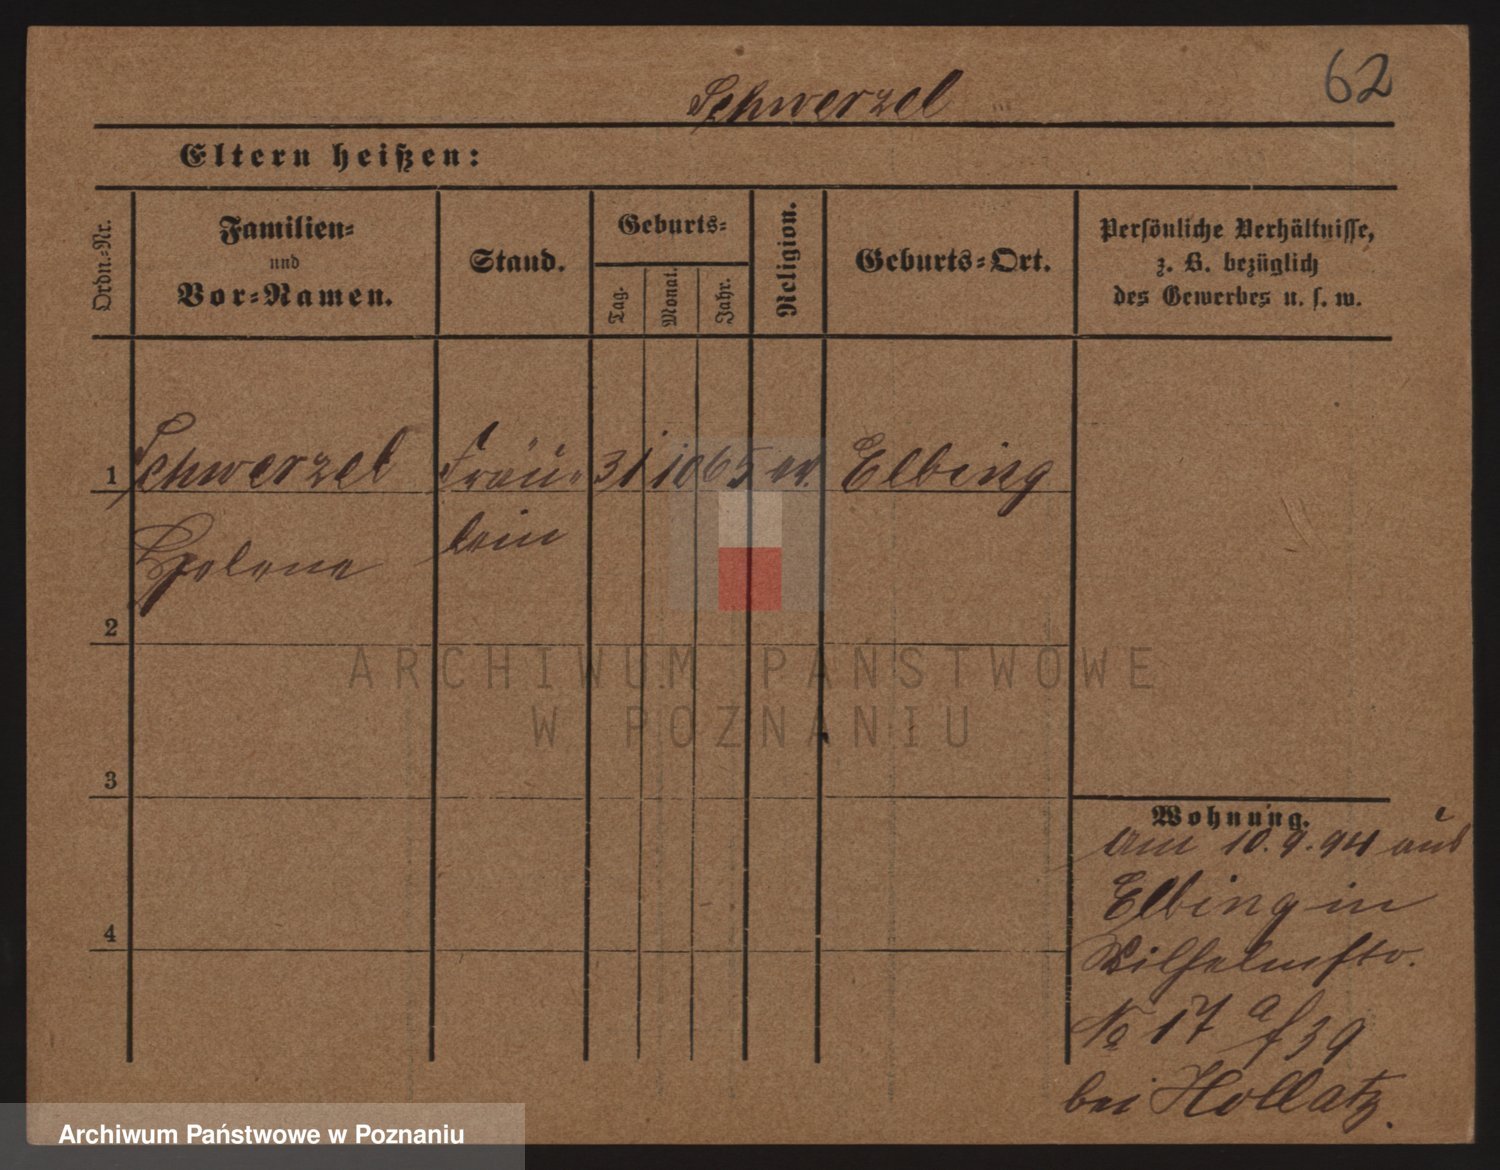 62
Schwerzel
Eltern heißen:
Ordn.-Nr.
Familien-
und
Vor-Namen.
Stand.
Geburts-
Tag.
Monat.
Jahr.
Religion.
Geburts-Ort.
Persönliche Verhältnisse,
z. B. bezüglich
des Gewerbes u. s. w.
1 Schwerzel Fräu- 31 10 65 ev. Elbing
Helene lein
2
ARCHIWUM PAŃSTWOWE
W POZNANIU
3
Wohnung.
am 10.9.94 aus
Elbing in
4
Wilhelmstr.
No 17 a/f 39
bei Hollatz.
Archiwum Państwowe w Poznaniu